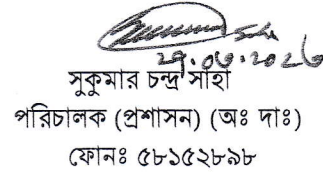 ২৯.০৬.২০২৬
সুকুমার চন্দ্র সাহা
পরিচালক (প্রশাসন) (অঃ দাঃ)
ফোনঃ ৫৮১৫২৮৯৮